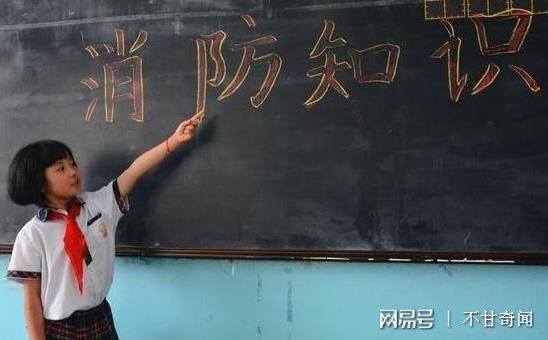 消防知识
网易号 | 不甘奇闻